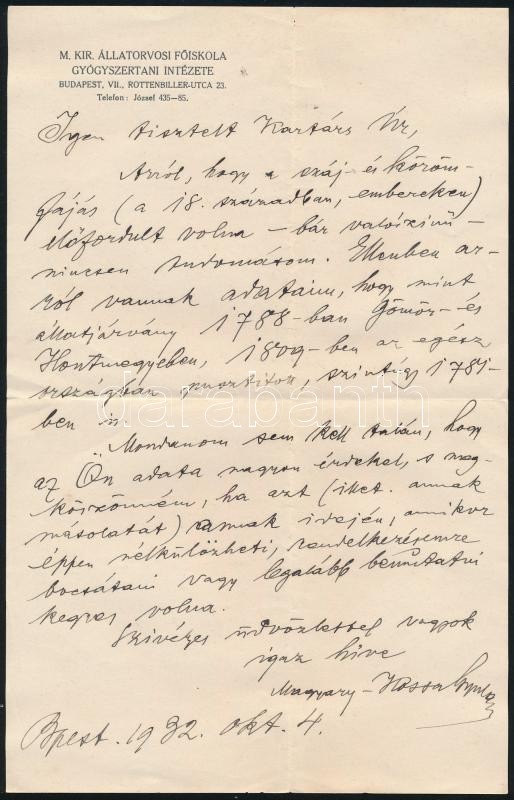 M. KIR. ÁLLATORVOSI FŐISKOLA
GYÓGYSZERTANI INTÉZETE
BUDAPEST, VII., ROTTENBILLER-UTCA 23.
Telefon: József 435—85.
Igen tisztelt Kartárs Úr,
Arról, hogy a száj- és köröm-
fájás (a 18. században, embereken)
előfordult volna – bár valószinű –
nincsen tudomásom. Ellenben ar-
ról vannak adataim, hogy mint
állatjárvány 1788-ban Gömör- és
Hontmegyében, 1809-ben az egész
országban pusztitott, szintúgy 1781-
ben is.
Mondanom sem kell talán, hogy
az Ön adata nagyon érdekel, s meg-
köszönném, ha azt (illet. annak
másolatát) annak idején, amikor
éppen nélkülözheti, rendelkezésemre
bocsátani vagy legalább bemutatni
kegyes volna.
Szivélyes üdvözlettel vagyok
igaz hive
Magyary-Kossa Gyula
Bpest. 1932. okt. 4.
darabanth